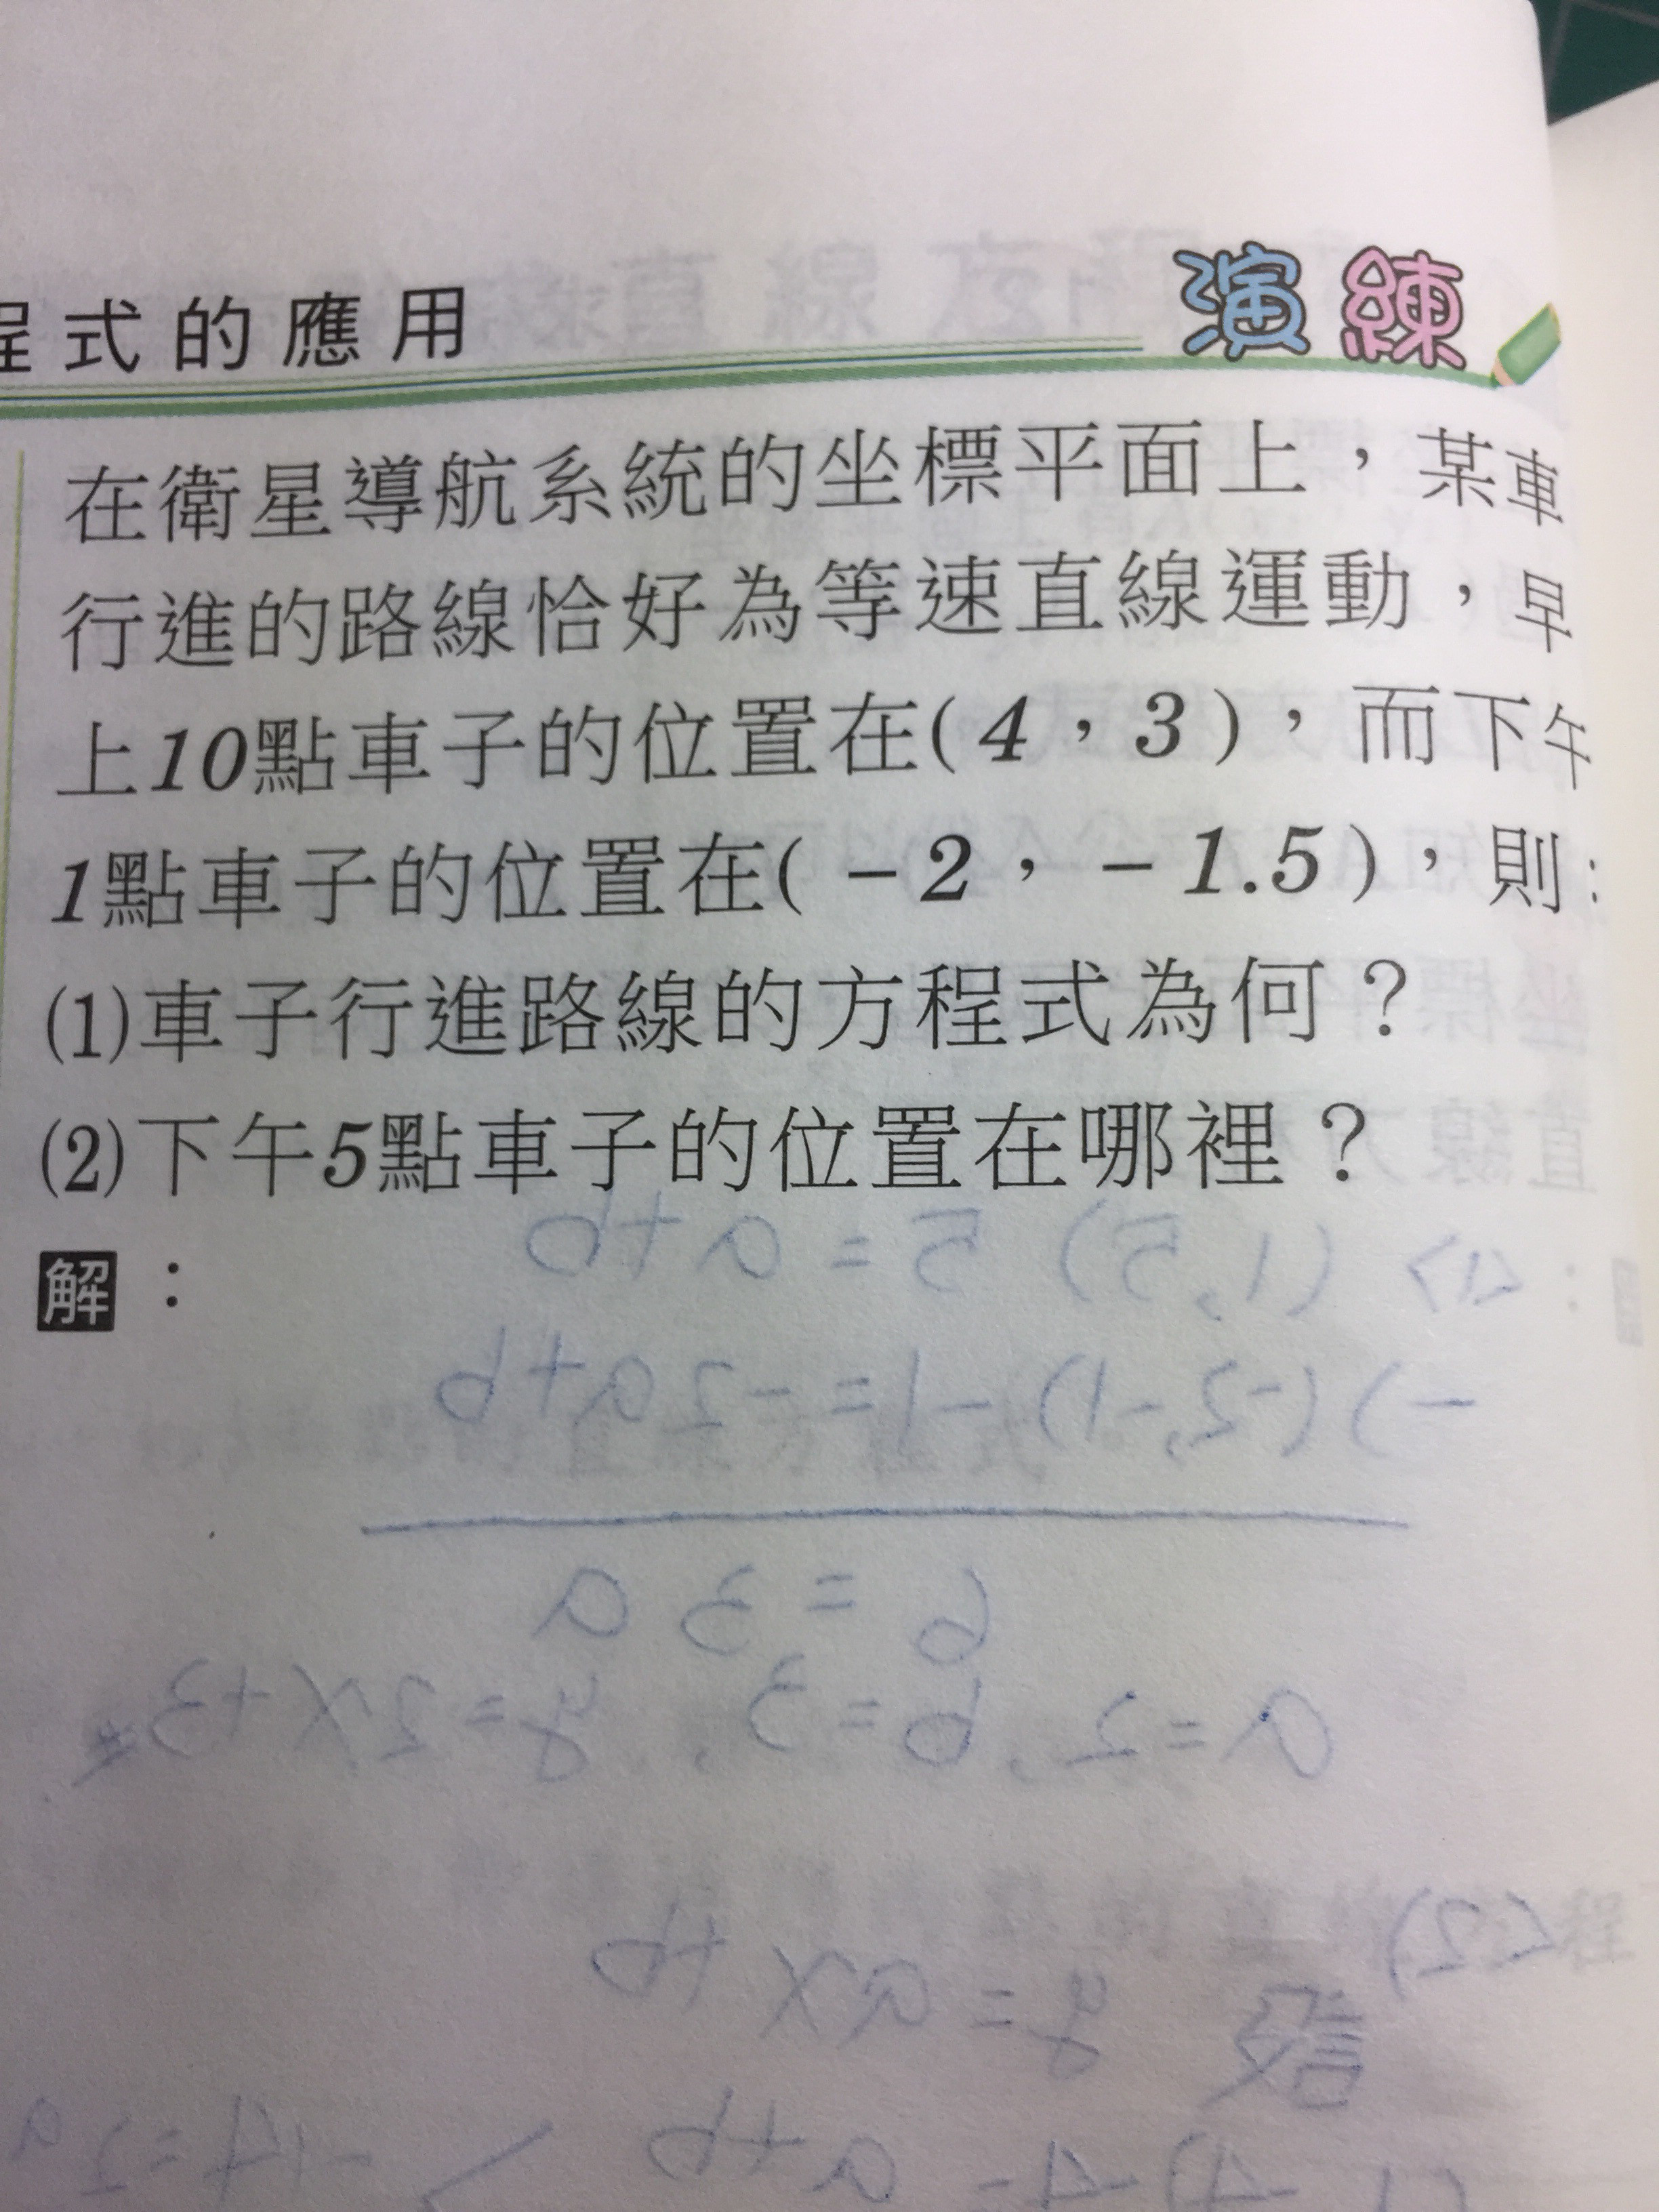 程式的應用
演練
在衛星導航系統的坐標平面上，某車
行進的路線恰好為等速直線運動，早
上10點車子的位置在(4，3)，而下午
1點車子的位置在(－2，－1.5)，則：
(1)車子行進路線的方程式為何？
(2)下午5點車子的位置在哪裡？
解：
<1> (1,5) 5=a+b
-)(-2,-1) -1=-2a+b
6=3a
a=2, b=3, y=2x+3
<2>
設 y=ax+b